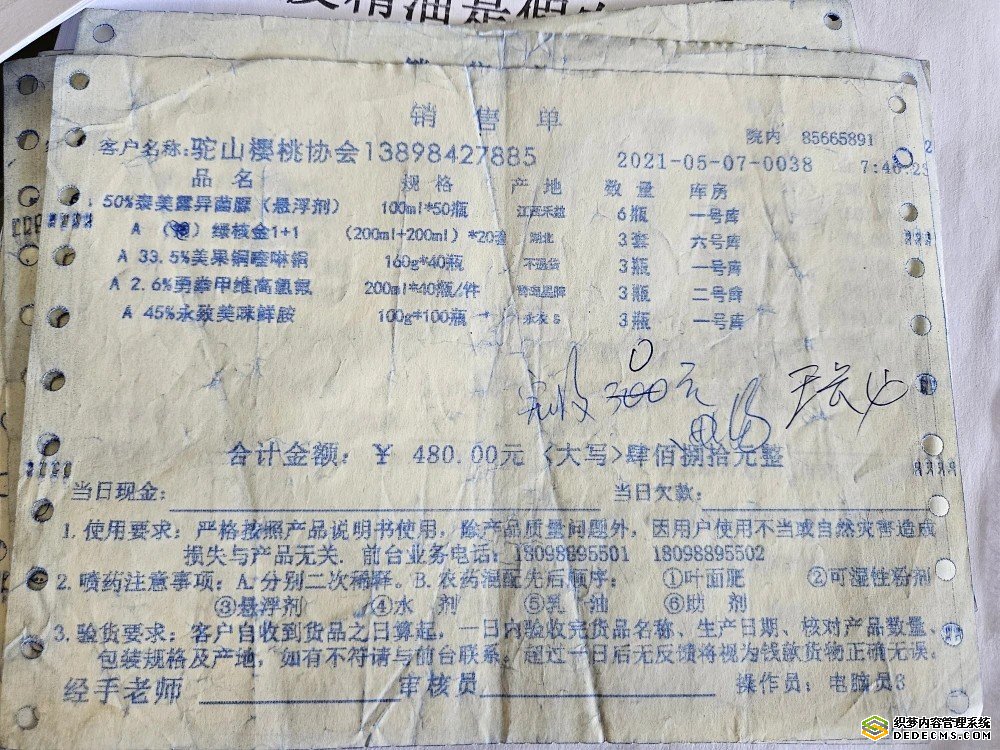 精油是假
销售单
院内 85665891
客户名称:驼山樱桃协会13898427885
2021-05-07-0038
品名 规格 产地 数量 库房
50%泰美露异菌脲（悬浮剂） 100ml*50瓶 江西禾益 6瓶 一号库
A 绿核金1+1 （200ml+200ml）*20套 湖北 3套 六号库
A 33.5%美果铜喹啉铜 160g*40瓶 不退货 3瓶 一号库
A 2.6%勇拳甲维高氯氟 200ml*40瓶/件 3瓶 二号库
A 45%永致美咪鲜胺 100g*100瓶 3瓶 一号库
合计金额: ￥ 480.00元 <大写>肆佰捌拾元整
当日现金: 当日欠款:
1.使用要求: 严格按照产品说明书使用, 除产品质量问题外, 因用户使用不当或自然灾害造成
损失与产品无关. 前台业务电话: 18098895501 18098895502
2.喷药注意事项: A.分别二次稀释。B.农药混配先后顺序: ①叶面肥 ②可湿性粉剂
③悬浮剂 ④水 剂 ⑤乳 油 ⑥助 剂
3.验货要求: 客户自收到货品之日算起, 一日内验收完货品名称、生产日期、核对产品数量、
包装规格及产地, 如有不符请与前台联系。超过一日后无反馈将视为钱款货物正确无误。
经手老师 审核员 操作员: 电脑员3
织梦内容管理系统
DEDECMS.COM